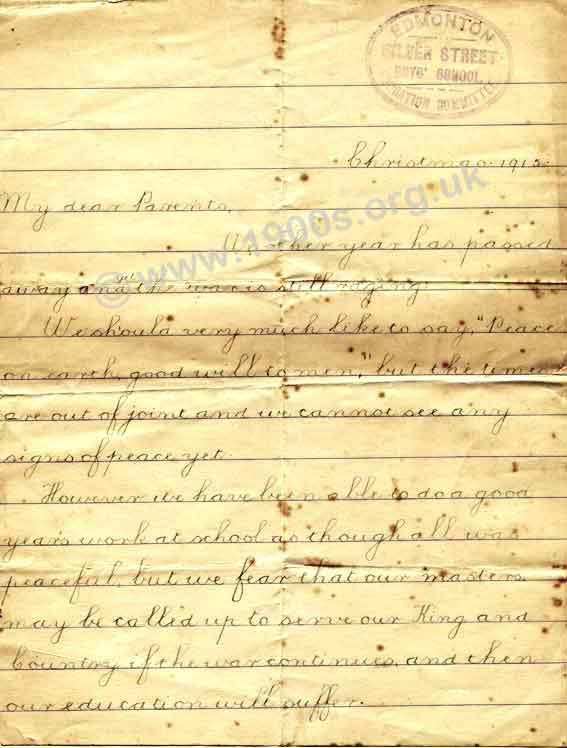 EDMONTON
SILVER STREET
BOYS' SCHOOL
EDUCATION COMMITTEE
Christmas. 1915.
My dear Parents,
Another year has passed
away and yet the war is still raging.
We should very much like to say, "Peace
on earth, good will to men," but the times
are out of joint and we cannot see any
signs of peace yet.
However we have been able to do a good
years work at school as though all was
peaceful, but we fear that our masters
may be called up to serve our King and
Country if the war continues, and then
our education will suffer.
© www.1900s.org.uk